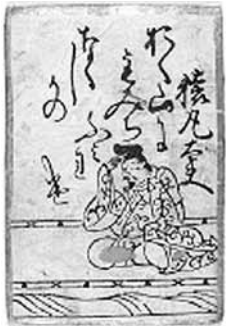 猿丸大夫
おく山に
もみち
ふみわ
け
なく
しかの